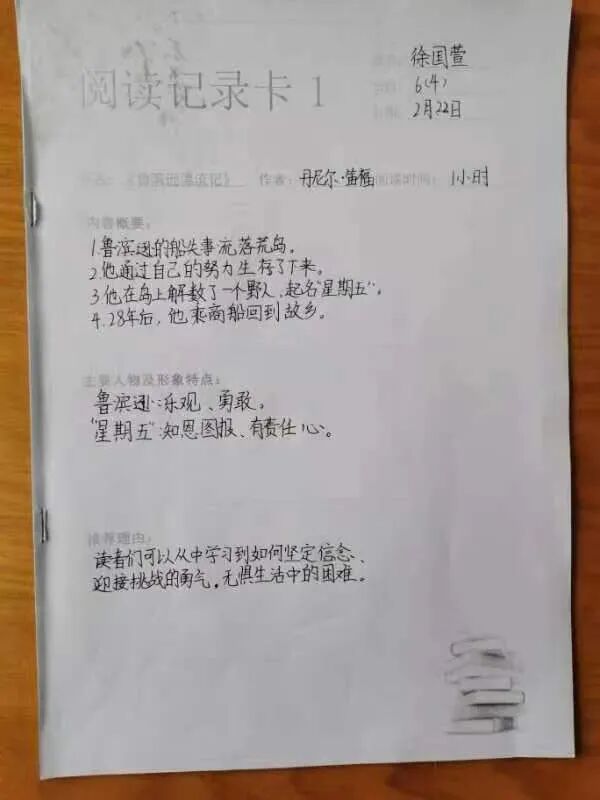 徐国萱
阅读记录卡 1
6(4)
2月22日
《鲁滨逊漂流记》 作者：丹尼尔·笛福 阅读时间：1小时
内容概要：
1.鲁滨逊的船失事流落荒岛。
2.他通过自己的努力生存了下来。
3.他在岛上解救了一个野人，起名"星期五"。
4.28年后，他乘商船回到故乡。
主要人物及形象特点：
鲁滨逊：乐观、勇敢。
"星期五"：知恩图报、有责任心。
推荐理由：
读者们可以从中学习到如何坚定信念、
迎接挑战的勇气，无惧生活中的困难。